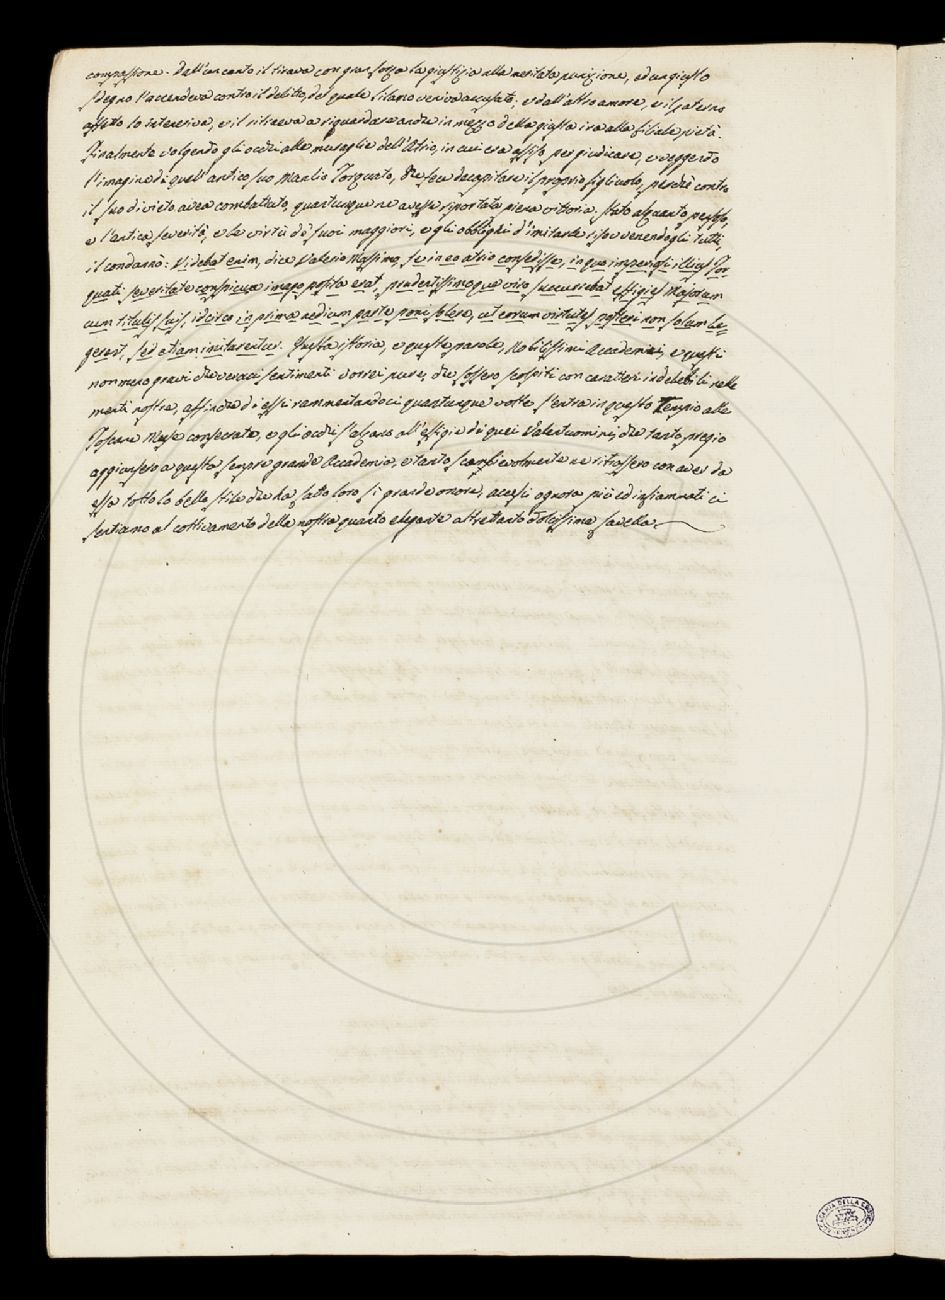 compassione. Dall'un canto il tirava con gran forza la giustizia alla meritata punizione, ed un giusto
sdegno l'accendeva contro il delitto, del quale Silano veniva accusato: e dall'altro amore, e il paterno
affetto lo inteneriva, e il ritraeva a riguardare anche in mezzo della giusta ira alla filiale pietà.
Finalmente volgendo gli occhi alle muraglie dell'Atrio, in cui era assiso per giudicare, e veggendo
l'imagine di quell'antico suo Manlio Torquato, che fece decapitare il proprio figliuolo, perchè contro
il suo divieto avea combattuto, quantunque ne avesse riportata piena vittoria. Stato alquanto perplesso,
e l'antica severità, e le virtù de' suoi maggiori, e gli obblighi d'imitarle risovvenendogli tutti,
il condannò: Videbat enim, dice Valerio Massimo, se in eo atrio consedisse, in quo imperiosi illius Tor
quati severitate conspicua imago posita erat, prudentissimoque viro succurrebat effigies Majorum
cum titulis suis, idcirco in prima aedium parte poni solere, ut eorum virtutes posteri non solum le=
gerent, sed etiam imitarentur. Questa istoria, e queste parole, Nobilissimi Accademici, e questi
non meno gravi che veraci sentimenti vorrei pure, che fossero scolpiti con caratteri indelebili nelle
menti nostre, affinchè di essi rammentandoci quantunque volte s'entra in questo Tempio alle
Toscane Muse consecrato, e gli occhi s'alzano all'effigie di quei Valentuomini, che tanto pregio
aggiunsero a questa sempre grande Accademia, e tanto scambievolmente ne ritrassero con aver da
essa tolto lo bello stile che ha fatto loro sì grande onore, accesi ognora più ed infiammati ci
sentiamo al coltivamento della nostra quanto elegante altrettanto dolcissima favella.